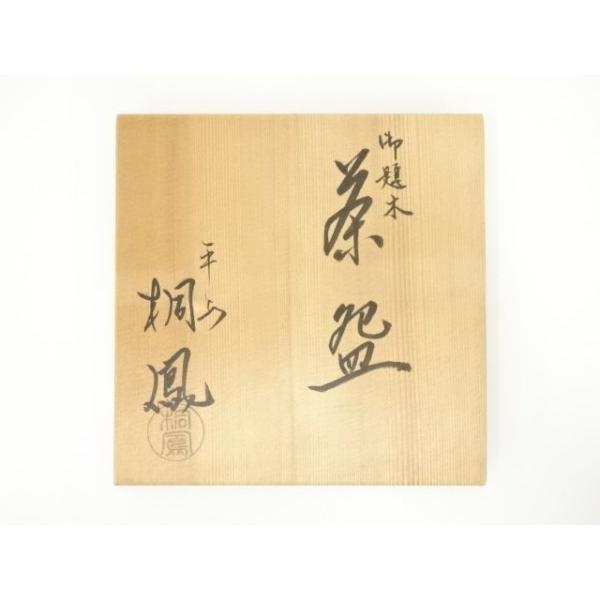 御題木
茶盌
平安
桐鳳
桐鳳